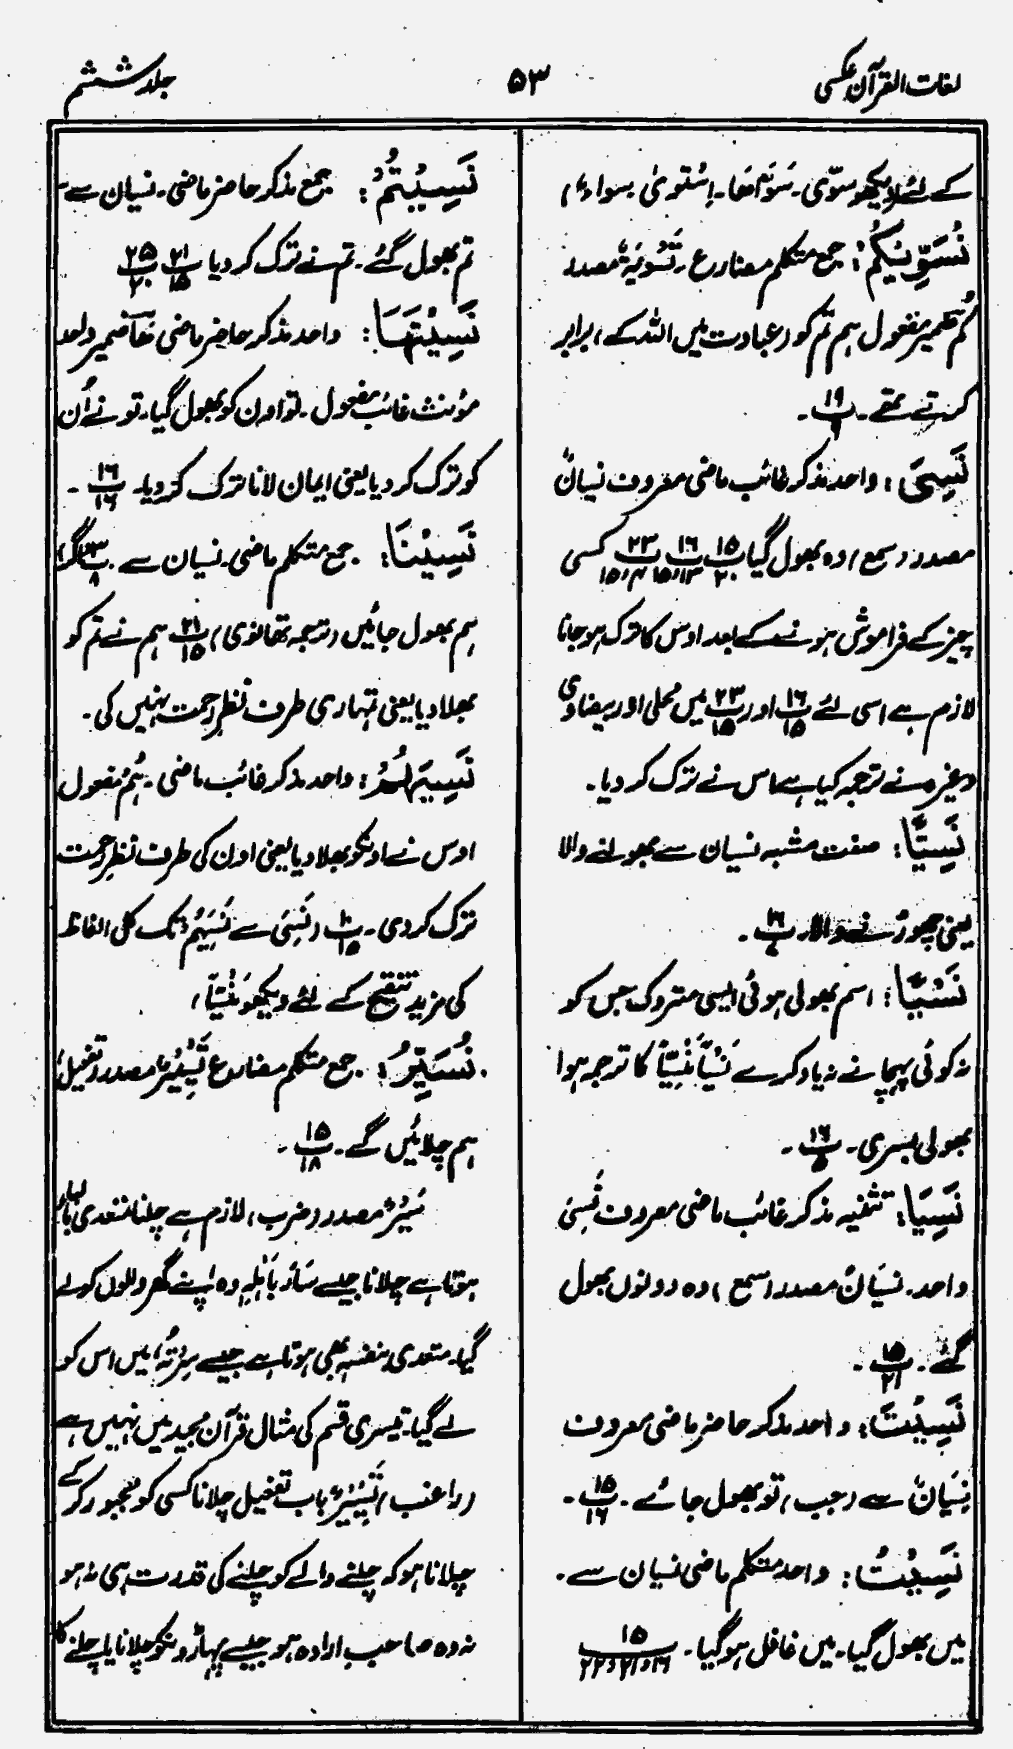 لغات القرآن عکسی
۵۳
جلد ششم
کے لئے دیکھو سوّی۔ سَوّٰىهَا۔ اِسْتَویٰ سواء)
نُسَوِّیْکُمْ: جمع متکلم مضارع۔ تَسْوِیَةٌ مصدر
کُمْ ضمیر مفعول ہم تم کو (عبادت میں اللہ کے) برابر
کرتے تھے۔ پ ۱۹/۹۔
نَسِیَ: واحد مذکر غائب ماضی معروف نسیانٌ
مصدر (سمع) وہ بھول گیا پ ۱۵/۲۰ پ ۱۶/۱۳، ۱۵ پ ۲۳/۴، ۱۵ کسی
چیز کے فراموش ہونے کے بعد اوس کا ترک ہوجانا
لازم ہے اسی لئے پ ۱۶/۱۵ اور پ ۲۳/۱۵ میں محلی اور بیضاوی
وغیرہ نے ترجمہ کیا ہے اس نے ترک کر دیا۔
نَسِیًّا: صفت مشبہ نسیان سے بھولنے والا
یعنی چھوڑنے والا۔ پ ۱۶/۷۔
نَسْیًا: اسم بھولی ہوئی ایسی متروک جس کو
نہ کوئی پہچانے نہ یاد کرے نَسْیًا مَّنْسِیًّا کا ترجمہ ہوا
بھولی بسری۔ پ ۱۶/۵۔
نَسِیَا: تثنیہ مذکر غائب ماضی معروف نَسِیَ
واحد۔ نسیانٌ مصدر (سمع) وہ دونوں بھول
گئے۔ پ ۱۵/۲۱۔
نَسِیْتَ: واحد مذکر حاضر ماضی معروف
نِسْیَانٌ سے (جب) تو بھول جائے۔ پ ۱۵/۱۶۔
نَسِیْتُ: واحد متکلم ماضی نسیان سے۔
میں بھول گیا۔ میں غافل ہوگیا۔ پ ۱۵/۱۶، ۲۱، ۲۲
نَسِیْتُمْ: جمع مذکر حاضر ماضی۔ نسیان سے۔
تم بھول گئے۔ تم نے ترک کر دیا پ ۲۱/۱۵ پ ۲۵/۲۰
نَسِیْتَهَا: واحد مذکر حاضر ماضی هَا ضمیر واحد
مؤنث غائب مفعول۔ تو اون کو بھول گیا۔ تو نے اُن
کو ترک کر دیا یعنی ایمان لانا ترک کر دیا۔ پ ۱۶/۱۶۔
نَسِیْنَا: جمع متکلم ماضی۔ نسیان سے پ ۳/۸ (اگر)
ہم بھول جائیں (ترجمہ تھانوی) پ ۲۱/۱۵ ہم نے تم کو
بھلا دیا یعنی تمہاری طرف نظرِ رحمت نہیں کی۔
نَسِیَهُمْ: واحد مذکر غائب ماضی۔ هُمْ مفعول
اوس نے اونکو بھلا دیا یعنی اون کی طرف نظرِ رحمت
ترک کر دی۔ پ ۱۰/۱۵ (نَسِیَ سے نَسِیَهُمْ تک کل الفاظ
کی مزید تنقیح کے لئے دیکھو مَنْسِیًّا)
نُسَیِّرُ: جمع متکلم مضارع تَسْیِیْرٌ مصدر (تفعیل)
ہم چلائیں گے۔ پ ۱۵/۱۸۔
سَیْرٌ مصدر (ضرب) لازم ہے چلنا متعدی بالباء
ہوتا ہے چلانا جیسے سَارَ بِاَهْلِهٖ وہ اپنے گھر والوں کو لے
گیا۔ متعدی بنفسہٖ بھی ہوتا ہے جیسے سِرْتُهٗ میں اس کو
لے گیا۔ تیسری قسم کی مثال قرآن مجید میں نہیں ہے
(راغب) تَسْیِیْرٌ باب تفعیل چلانا کسی کو مجبور کر کے
چلانا ہو کہ چلنے والے کو چلنے کی قدرت ہی نہ ہو
نہ وہ صاحبِ ارادہ ہو جیسے پہاڑونکو چلانا یا چلنے کا